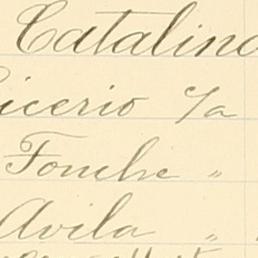 Catalino
icerio  %a
Fonche  "
Avila  "  "